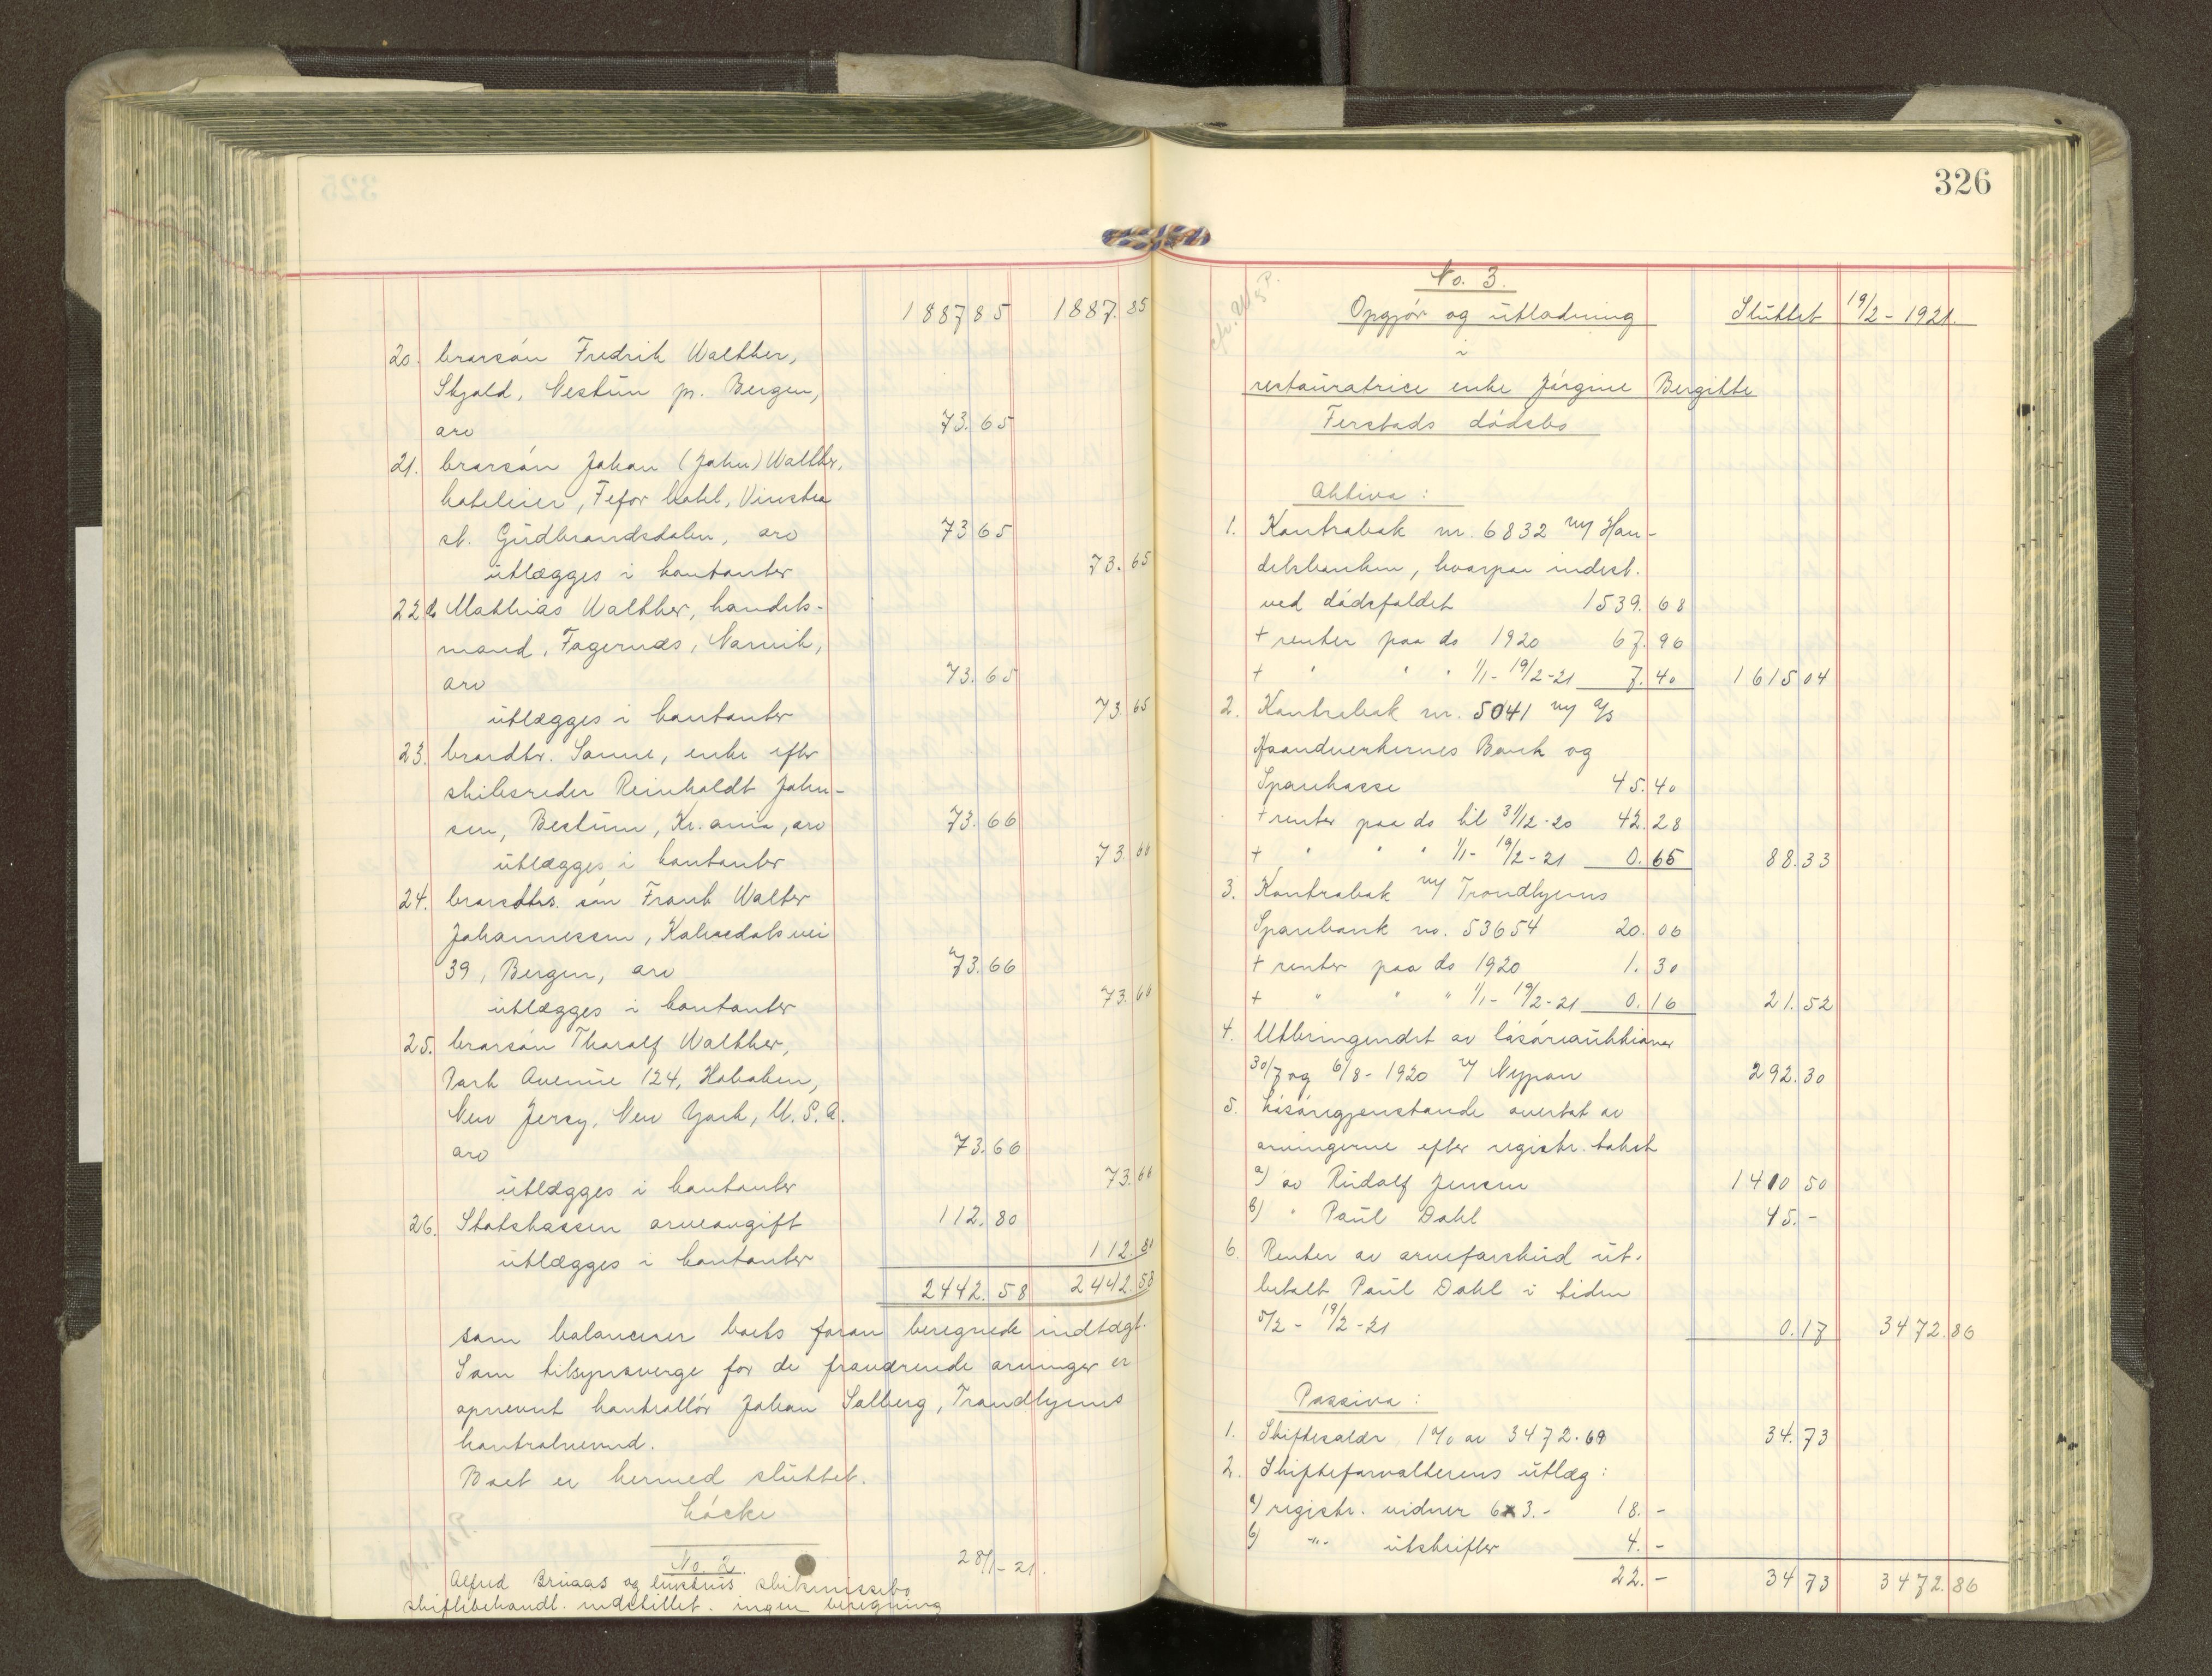 1887 85 1887.85
20. brorsøn Fredrik Walther,
Skjold, Nestun pr. Bergen,
arv 73.65
21. brorsøn Johan (John) Walther,
hoteleier, Fefor hotel, Vinstra
st. Gudbrandsdalen, arv 73 65
utlægges i kontanter 73.65
22. do Mathias Walther, handels-
mand, Fagernæs, Narvik,
arv 73.65
utlægges i kontanter 73.65
23. brordtr. Sanne, enke efter
skibsreder Reinholdt John-
sen, Bestum, Kr.ania, arv 73.66
utlægges i kontanter 73.66
24. brorsdtrs. søn Frank Walter
Johannessen, Kalvedalsvei
39, Bergen, arv 73.66
utlægges i kontanter 73.66
25. brorsøn Tharalf Walther,
Park Avenue 124, Hoboken,
New Jersy, New York, U.S.A.
arv 73.66
utlægges i kontanter 73.66
26. Statskassen arveavgift 112.80
utlægges i kontanter 112.80
2442.58 2442.58
som balancerer boets foran beregnede indtægt.
Som tilsynsverge for de fraværende arvinger er
opnevnt kontrollør Johan Solberg, Trondhjems
kontrolnevnd.
Boet er hermed sluttet.
Løcke
No 2.
28/1-21.
Alfred Bruaas og hustrus skilsmissebo
skiftebehandl. indstillet. ingen beregning
326
No. 3.
Opgjør og utlodning Sluttet 19/2-1921.
i
restauratrice enke Jørgine Bergitte
Ferstads dødsbo
Aktiva:
1. Kontrabok nr. 6832 m/ Han-
delsbanken, hvorpaa indest.
ved dødsfaldet 1539.68
+ renter paa do 1920 67.96
+ " " " 1/1-19/2-21 7.40 1615 04
2. Kontrabok nr. 5041 m/ A/S
Haandverkernes Bank og
Sparekasse 45.40
+ renter paa do til 31/12-20 42.28
+ " " " 1/1-19/2-21 0.65 88.33
3. Kontrabok m/ Trondhjems
Sparebank no. 53654 20.06
+ renter paa do 1920 1.30
+ " " " 1/1-19/2-21 0.16 21.52
4. Utbringendet av løsøreauktioner
30/7 og 6/8-1920 v/ Nypan 292.30
5. Løsøregjenstande overtat av
arvingerne efter registr. takst
a) av Rudolf Jensen 1410 50
b) " Paul Dahl 45.-
6. Renter av arveforskud ut-
betalt Paul Dahl i tiden
5/2-19/2-21 0.17 3472.86
Passiva:
1. Skiftesalær 1% av 3472.69 34.73
2. Skifteforvalterens utlæg:
a) registr. vidner 6x3.- 18.-
b) -"- utskrifter 4.-
22.- 34 73 3472.86